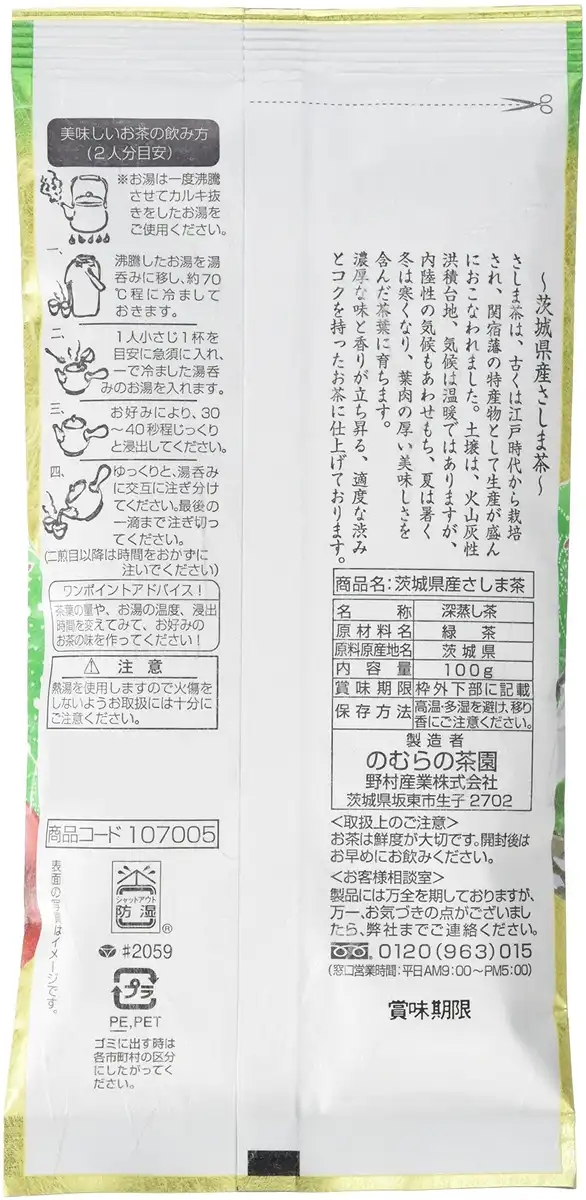 美味しいお茶の飲み方
(2人分目安)
※お湯は一度沸騰
させてカルキ抜
きをしたお湯を
ご使用ください。
一、
沸騰したお湯を湯
呑みに移し、約70
℃程に冷まして
おきます。
二、
1人小さじ1杯を
目安に急須に入れ、
一で冷ました湯呑
みのお湯を入れます。
三、
お好みにより、30
～40秒程じっくり
と浸出してください。
四、
ゆっくりと、湯呑み
に交互に注ぎ分け
てください。最後の
一滴まで注ぎ切っ
てください。
(二煎目以降は時間をおかずに
注いでください)
ワンポイントアドバイス!
茶葉の量や、お湯の温度、浸出
時間を変えてみて、お好みの
お茶の味を作ってください!
⚠ 注意
熱湯を使用しますので火傷を
しないようお取扱には十分に
ご注意ください。
商品コード 107005
表面の写真はイメージです。
シャットアウト
防湿
®
#2059
プラ
PE,PET
ゴミに出す時は
各市町村の区分
にしたがってく
ださい。
～茨城県産さしま茶～
さしま茶は、古くは江戸時代から栽培
され、関宿藩の特産物として生産が盛ん
におこなわれました。土壌は、火山灰性
洪積台地、気候は温暖ではありますが、
内陸性の気候もあわせもち、夏は暑く
冬は寒くなり、葉肉の厚い美味しさを
含んだ茶葉に育ちます。
濃厚な味と香りが立ち昇る、適度な渋み
とコクを持ったお茶に仕上げております。
商品名:茨城県産さしま茶
名称 深蒸し茶
原材料名 緑茶
原料原産地名 茨城県
内容量 100g
賞味期限 枠外下部に記載
保存方法 高温・多湿を避け、移り
香にご注意ください。
製造者
のむらの茶園
野村産業株式会社
茨城県坂東市生子2702
<取扱上のご注意>
お茶は鮮度が大切です。開封後は
お早めにお飲みください。
<お客様相談室>
製品には万全を期しておりますが、
万一、お気づきの点がございまし
たら、弊社までご連絡ください。
0120(963)015
(窓口営業時間:平日AM9:00～PM5:00)
賞味期限